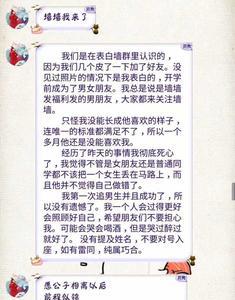 墙墙我来了
我们是在表白墙群里认识的，
因为我们几个皮了一下加了好友。没
见过照片的情况下是我表白的，开学
前成为了男女朋友。我总是说是墙墙
发福利发的男朋友，大家都来关注墙
墙。
只怪我没能长成他喜欢的样子，
连唯一的标准都满足不了，所以一个
多月他还是没能喜欢我。
经历了昨天的事情我彻底死心
了，我觉得不管是女朋友还是普通同
学都不该把一个女生丢在马路上，而
且他并不觉得自己做错了。
我第一次追男生并且成功了，所
以没有遗憾了。我一个人会过得更好
会照顾好自己，希望朋友们不要担心
我。可能会哭会喝酒，但是哭过醉过
就好了。 没有提及姓名，不要对号入
座，如有雷同，纯属巧合。
愚公子抱离以后
前程似锦